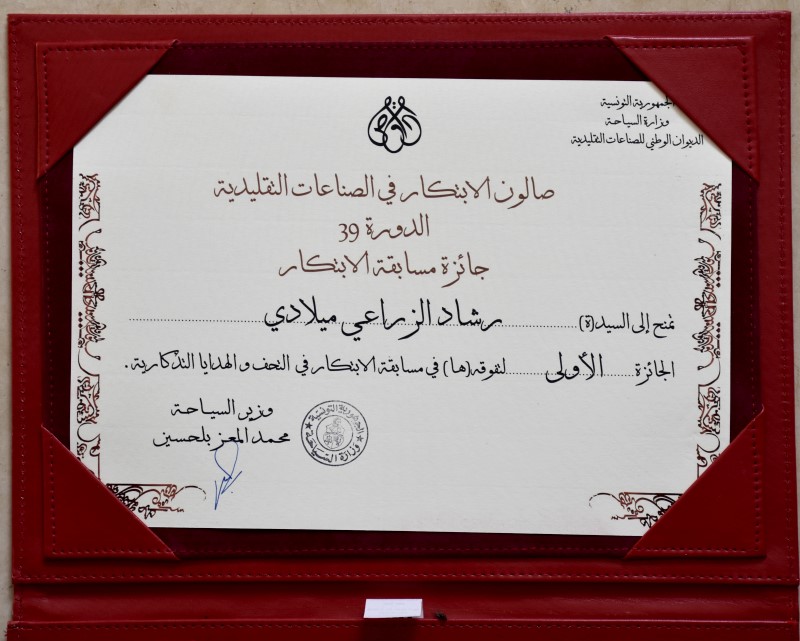 الجمهورية التونسية
وزارة السياحة
الديوان الوطني للصناعات التقليدية
صالون الابتكار في الصناعات التقليدية
الدورة 39
جائزة مسابقة الابتكار
تمنح إلى السيد(ة) رشاد الزراعي ميلادي
الجائزة الأولى لتفوقه(ها) في مسابقة الابتكار في التحف والهدايا التذكارية.
وزير السياحة
محمد المعز بلحسين
الجمهورية التونسية
وزارة السياحة